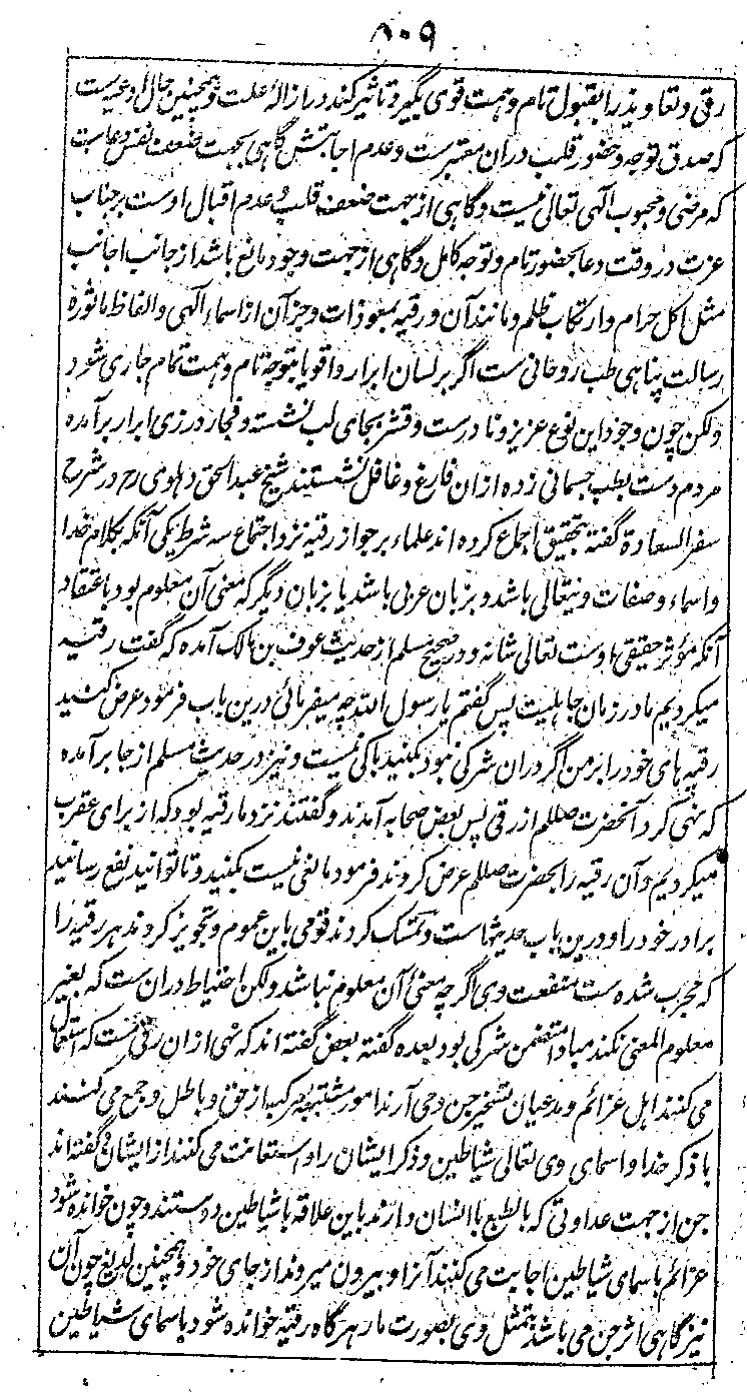 ۸۰۹
رقی و تعاویذ را بقبول تام و همت قوی بگیرد تاثیر کند در ازالۀ علت و همچنین حال دعا ست
که صدق توجه و حضور قلب دران معتبر ست و عدم اجابتش گاهی بجهت ضعف نفس دعاست
که مرضی و محبوب الهی تعالی نیست و گاهی از جهت ضعف قلب و عدم اقبال اوست بر جناب
عزت در وقت دعا بحضور تام و توجه کامل و گاهی از جهت وجود مانع باشد از جانب اجانب
مثل اکل حرام و ارتکاب ظلم و مانند آن و رقیه بمعوذات و جز آن از اسماء الهی و الفاظ ماثوره
رسالت پناهی طب روحانی ست اگر بر لسان ابرار و اقویا بتوجه تام و همت تمام جاری شود
ولکن چون وجود این نوع عزیز و نادر ست و قشر بجای لب نشسته و فجار در زی ابرار برآمده
مردم دست بطب جسمانی زده ازان فارغ و غافل نشستند شیخ عبدالحق دهلوی رح در شرح
سفر السعادة گفته بتحقیق اجماع کرده اند علماء بر جواز رقیه نزد اجتماع سه شرط یکی آنکه بکلام خدا
و اسماء و صفات ویتعالی باشد و بزبان عربی باشد یا بزبان دیگر که معنی آن معلوم بود باعتقاد
آنکه مؤثر حقیقی اوست تعالی شانه و در صحیح مسلم از حدیث عوف بن مالک آمده که گفت رقیه
میکردیم ما در زمان جاهلیت پس گفتم یا رسول الله چه میفرمائی درین باب فرمود عرض کنید
رقیه های خود را بر من اگر دران شرکی نبود بکنید باکی نیست و نیز در حدیث مسلم از جابر آمده
که نهی کرد آنحضرت صللم از رقی پس بعض صحابه آمدند و گفتند نزد ما رقیه بود که از برای عقرب
میکردیم و آن رقیه را بحضرت صللم عرض کردند فرمود مانعی نیست بکنید و تا توانید نفع رسانید
برادر خود را و درین باب حدیثهاست و تمسک کردند قومی باین عموم و تجویز کردند هر رقیه را
که مجرب شده ست منفعت وی اگرچه معنی آن معلوم نباشد ولکن احتیاط دران ست که بغیر
معلوم المعنی نکند مبادا متضمن شرکی بود بعده گفته بعض گفته اند که نهی ازان رقی ست که استعمال
می کنند اهل عزائم و مدعیان تسخیر جن و می آرند امور مشتبه مرکب از حق و باطل و جمع می کنند
با ذکر خدا و اسمای وی تعالی شیاطین و ذکر ایشان را و استعانت می کنند از ایشان و گفته اند
جن از جهت عداوتی که بالطبع با انسان دارند باین علاقه با شیاطین دوستند و چون خوانده شود
عزائم باسمای شیاطین اجابت می کنند آنرا و بیرون میروند از جای خود و همچنین لدیغ چون آن
نیز گاهی اثر جن می باشد بتمثل وی بصورت مار هرگاه رقیه خوانده شود باسمای شیاطین